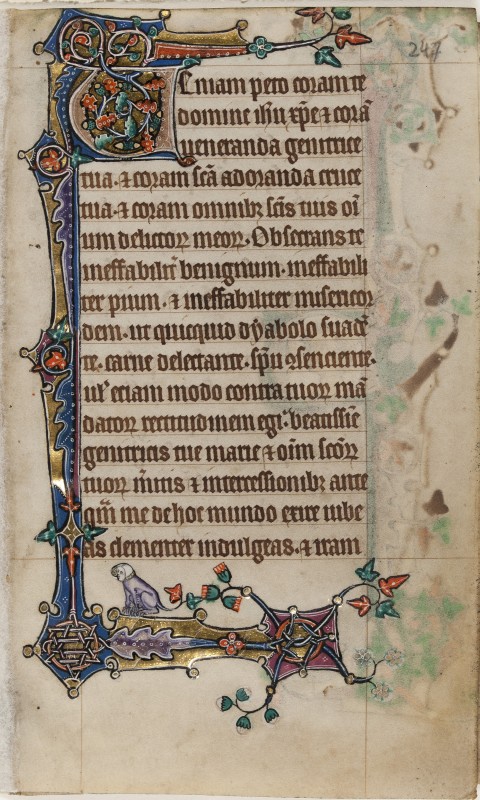 247
Ueniam peto coram te
domine ihu xpe ⁊ corā
ueneranda genitrice
tua. ⁊ coram scā adoranda cruce
tua. ⁊ coram omnibꝫ scīs tuis oī
um delictoꝝ meoꝝ. Obsecrans te
ineffabilit̄ benignum. ineffabili
ter pium. ⁊ ineffabiliter misericor
dem. ut quicquid dẏabolo suadē
te. carne delectante. spū ꝯsenciente.
ul' eciam modo contra tuoꝝ mā
datoꝝ rectitudinem egi. beatissīe
genitricis tue marie ⁊ oīm scōꝝ
tuoꝝ m̄itis ⁊ intercessionibꝫ ante
qm̄ me de hoc mundo exire iube
as clementer indulgeas. ⁊ iram